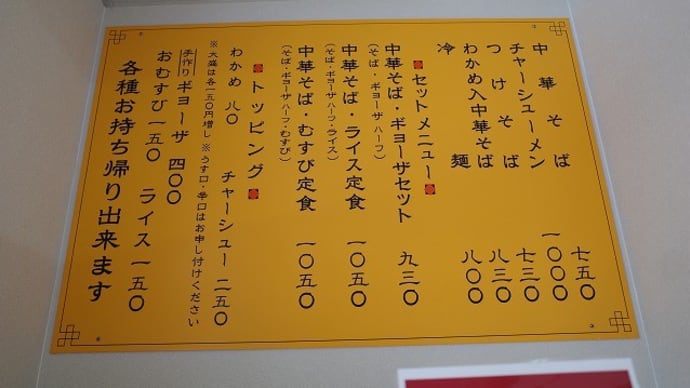 中華そば 七五〇
チャーシューメン 一〇〇〇
つけそば 七三〇
わかめ入中華そば 八三〇
冷麺 八〇〇
セットメニュー
中華そば・ギョーザセット 九三〇
(そば・ギョーザ ハーフ)
中華そば・ライス定食 一〇五〇
(そば・ギョーザ ハーフ・ライス)
中華そば・むすび定食 一〇五〇
(そば・ギョーザ ハーフ・むすび)
トッピング
わかめ 八〇 チャーシュー 二五〇
※大盛は各一五〇円増し ※うす口・辛口はお申し付けください
手作りギョーザ 四〇〇
おむすび 一五〇 ライス 一五〇
各種お持ち帰り出来ます